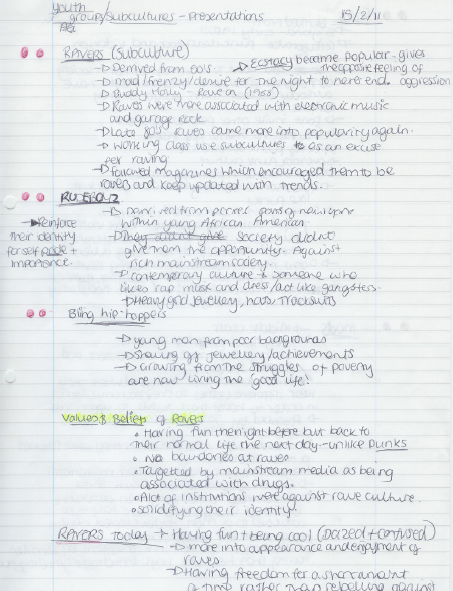 Youth
groups/subcultures - Presentations 15/2/11
RAVERS (subculture)
→ Derived from 60's. → Ecstacy became popular - gives the opposite feeling of aggression
→ mad/frenzy/desire for the night to never end.
→ Buddy Holly - Rave on (1958)
→ Raves were more associated with electronic music
and garage rock
→ Late 80's raves came more into popularity again.
→ Working class use subcultures as an excuse
for raving
→ Followed magazines which encouraged them to be
ravers and keep updated with trends.
RUDEBOYZ
→ Derived from
within young African American
→ They didn't give society didnt
give them the opportunity. Against
rich mainstream society
→ Reinforce
their identity
for self pride +
importance.
→ Contemporary culture → someone who
likes rap music and dress/act like gangsters.
→ Heavy gold jewellery, hats, tracksuits
Bling hip-hoppers
→ young men from poor backgrounds
→ Showing off jewellery/achievements
→ Growing from the struggles of poverty
are now living the 'good' life!
Values & Beliefs of Raves
• Having fun the night before but back to
their normal life the next day - unlike punks
• No boundries at raves
• Targetted by mainstream media as being
associated with drugs.
• Alot of institutions were against rave culture.
• Solidifying their identity
RAVERS Today → Having fun + being cool (Dazed + confused)
→ more into appearance and enjoyment of
raves
→ Having freedom for a short amount
of time rather than rebelling against